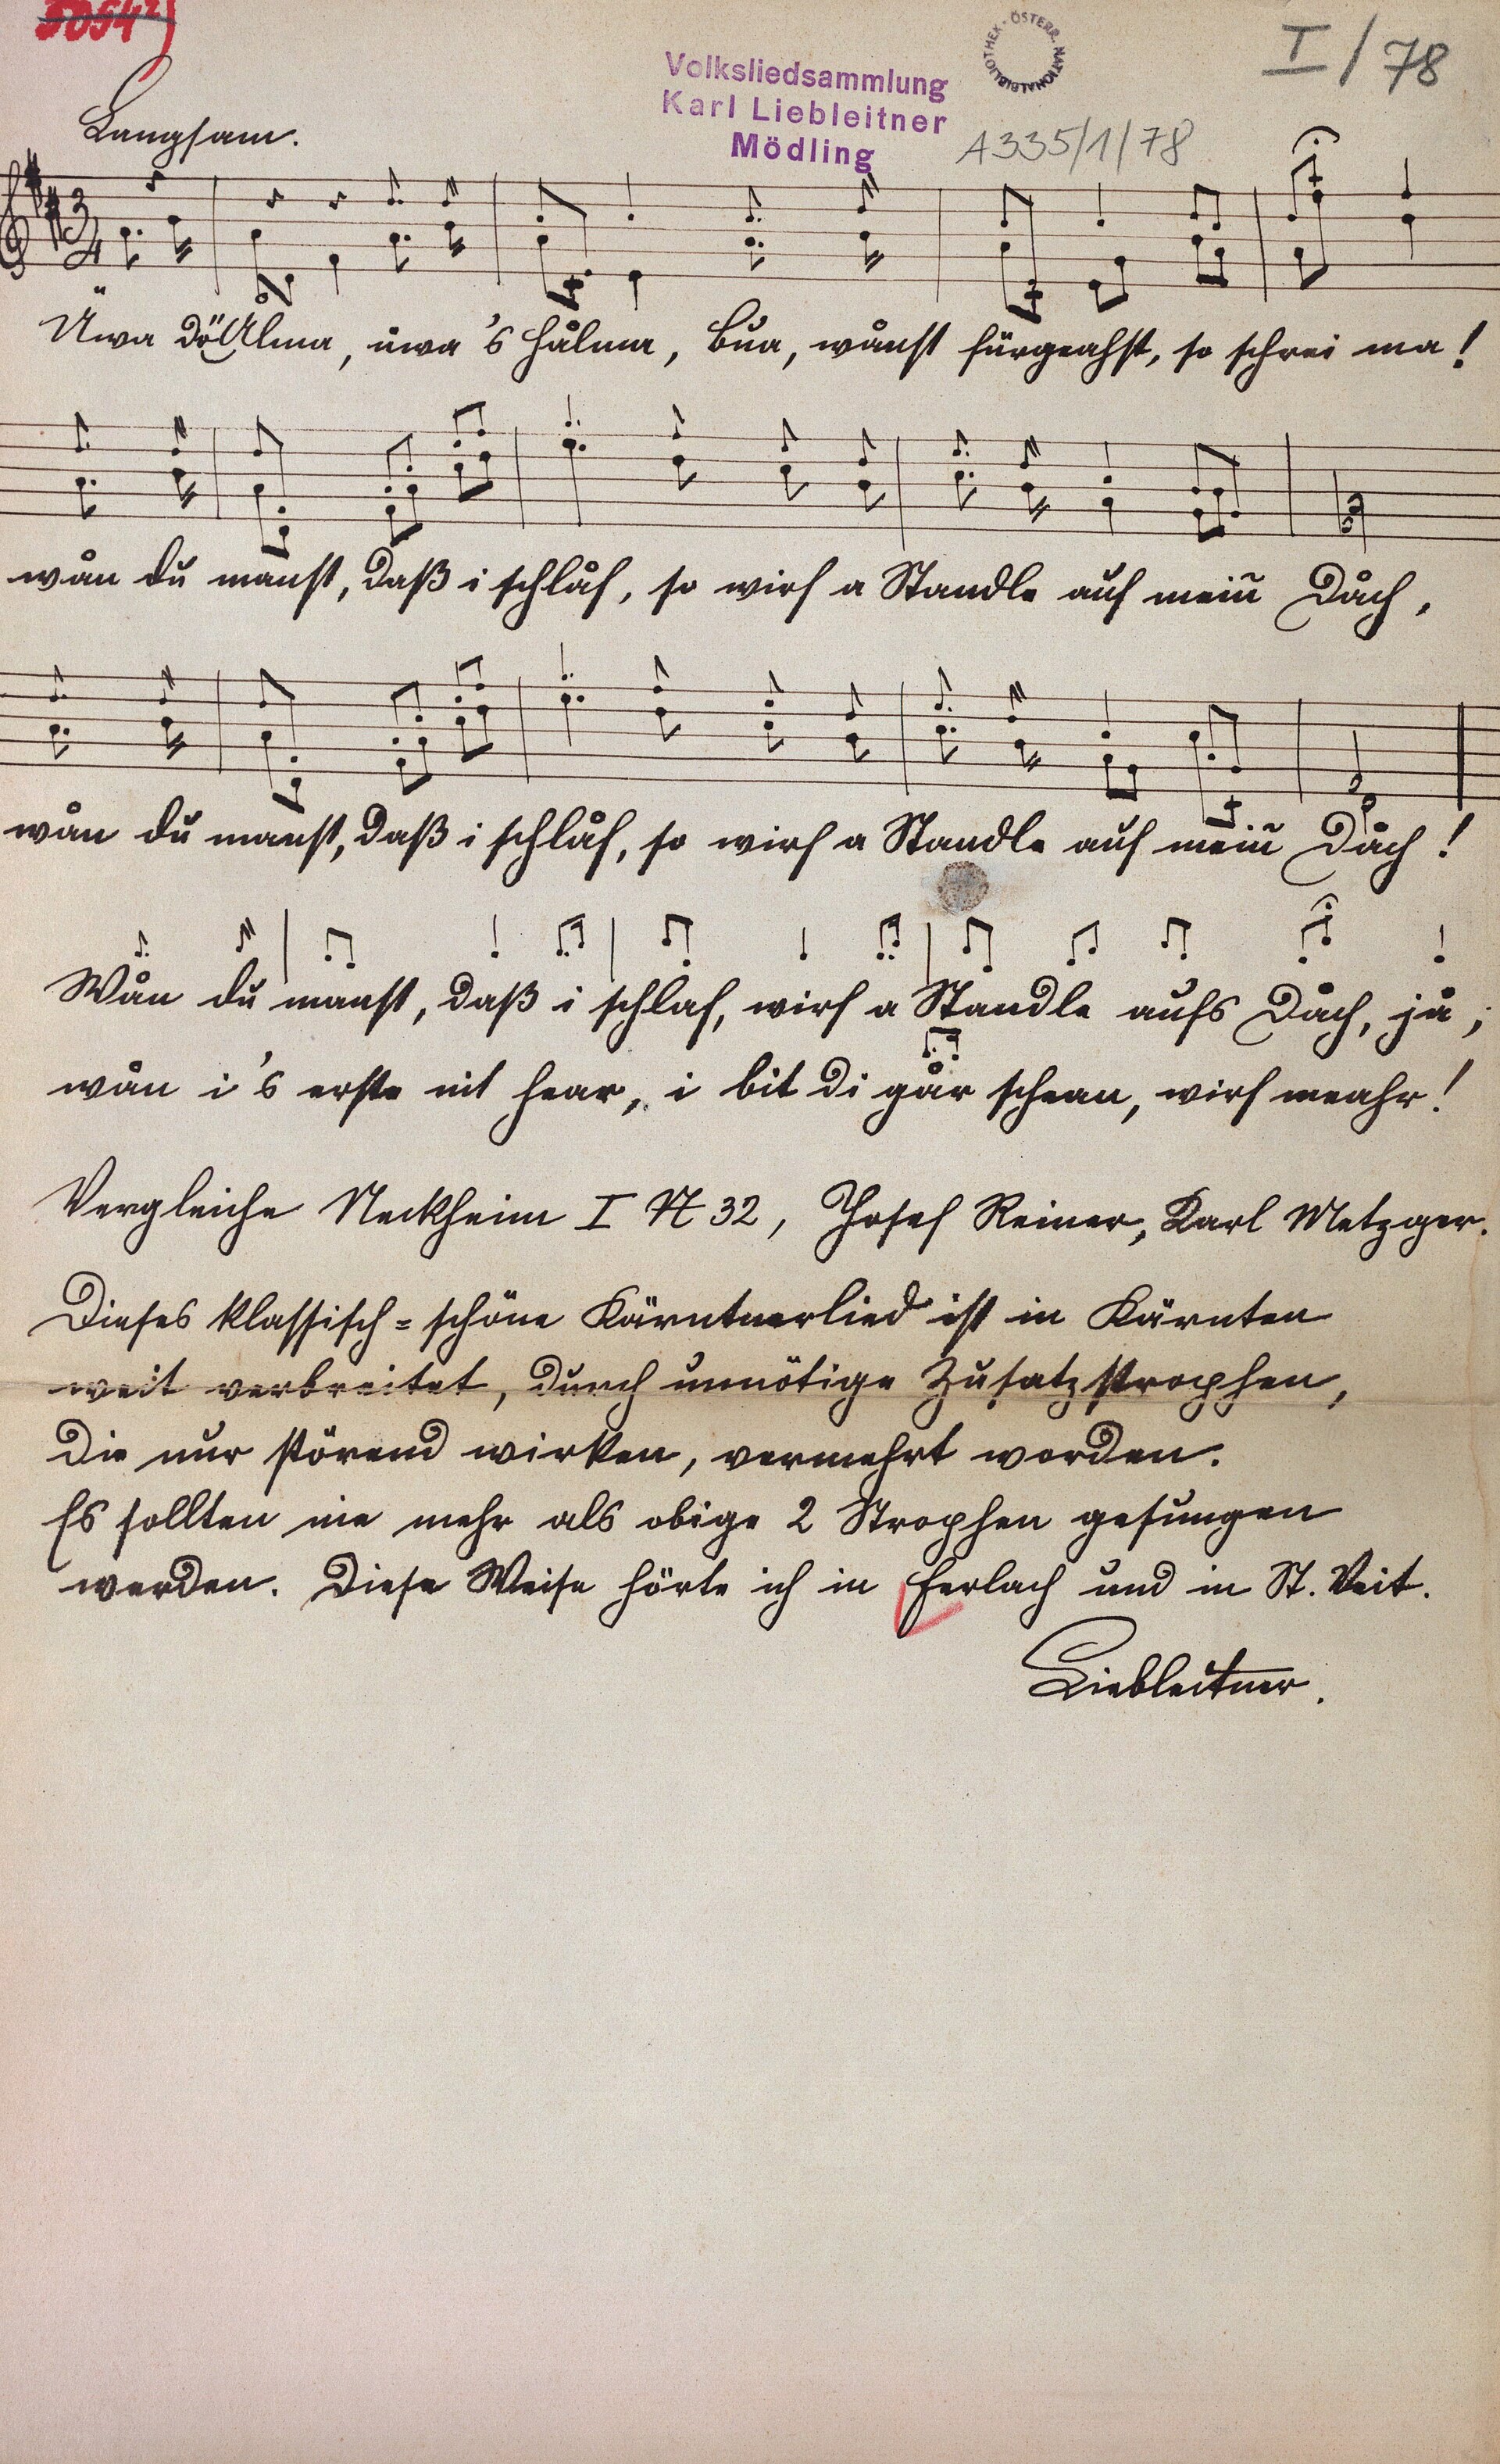 50542
I/78
ÖSTERR. NATIONALBIBLIOTHEK
Volksliedsammlung
Karl Liebleitner
Mödling
A335/1/78
Langsam.
3/4
Üwa dö Ålma, üwa 's Hålma, Bua, wånst fürgeahst, so schrei ma!
wån du manst, daß i schlåf, so wirf a Standle auf mein̄ Dåch,
wån du manst, daß i schlåf, so wirf a Standle auf mein̄ Dåch!
Wån du manst, daß i schlaf, wirf a Standle aufs Dåch, jå,
wån i's erste nit hear, i bit di går schean, wirf meahr!
Vergleiche Neckheim I N 32, Josef Reiner, Karl Metzger.
Dieses klassisch=schöne Kärntnerlied ist in Kärnten
weit verbreitet, durch unnötige Zusatzstrophen,
die nur störend wirken, vermehrt worden.
Es sollten nie mehr als obige 2 Strophen gesungen
werden. Diese Weise hörte ich in Ferlach und in St. Veit.
Liebleitner.